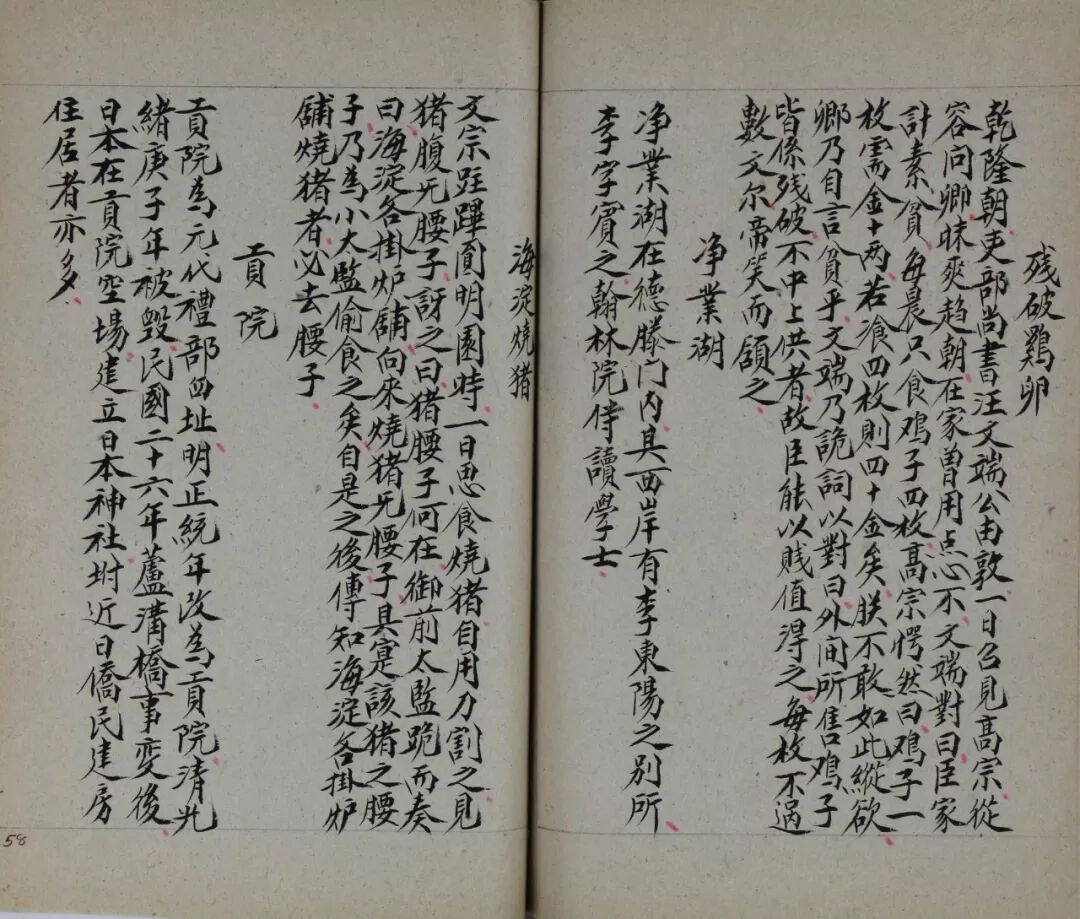 残破鷄卵
乾隆朝吏部尚書汪文端公由敦一日召見高宗從
容问卿昧爽趋朝在家曾用点心不文端對曰臣家
計素貧每晨只食鸡子四枚高宗愕然曰鸡子一
枚需金十两若飡四枚則四十金矣朕不敢如此縱欲
卿乃自言貧乎文端乃詭詞以對曰外间所售鸡子
皆係残破不中上供者故臣能以賤值得之每枚不過
數文尔帝笑而頷之
净業湖
净業湖在德勝门内其西岸有李東陽之别所
李字賓之翰林院侍讀學士
海淀燒猪
文宗跓蹕圓明園時一日思食燒猪自用刀割之見
猪腹旡腰子訝之曰猪腰子何在御前太監跪而奏
曰海淀各掛炉舖向来燒猪旡腰子具寔該猪之腰
子乃為小太監偷食之矣自是之後傳知海淀各掛炉
舖燒猪者必去腰子
貢院
貢院為元代禮部旧址明正統年改為貢院清光
緒庚子年被毁民國二十六年蘆溝橋事变後
日本在貢院空場建立日本神社坿近日僑民建房
住居者亦多
58